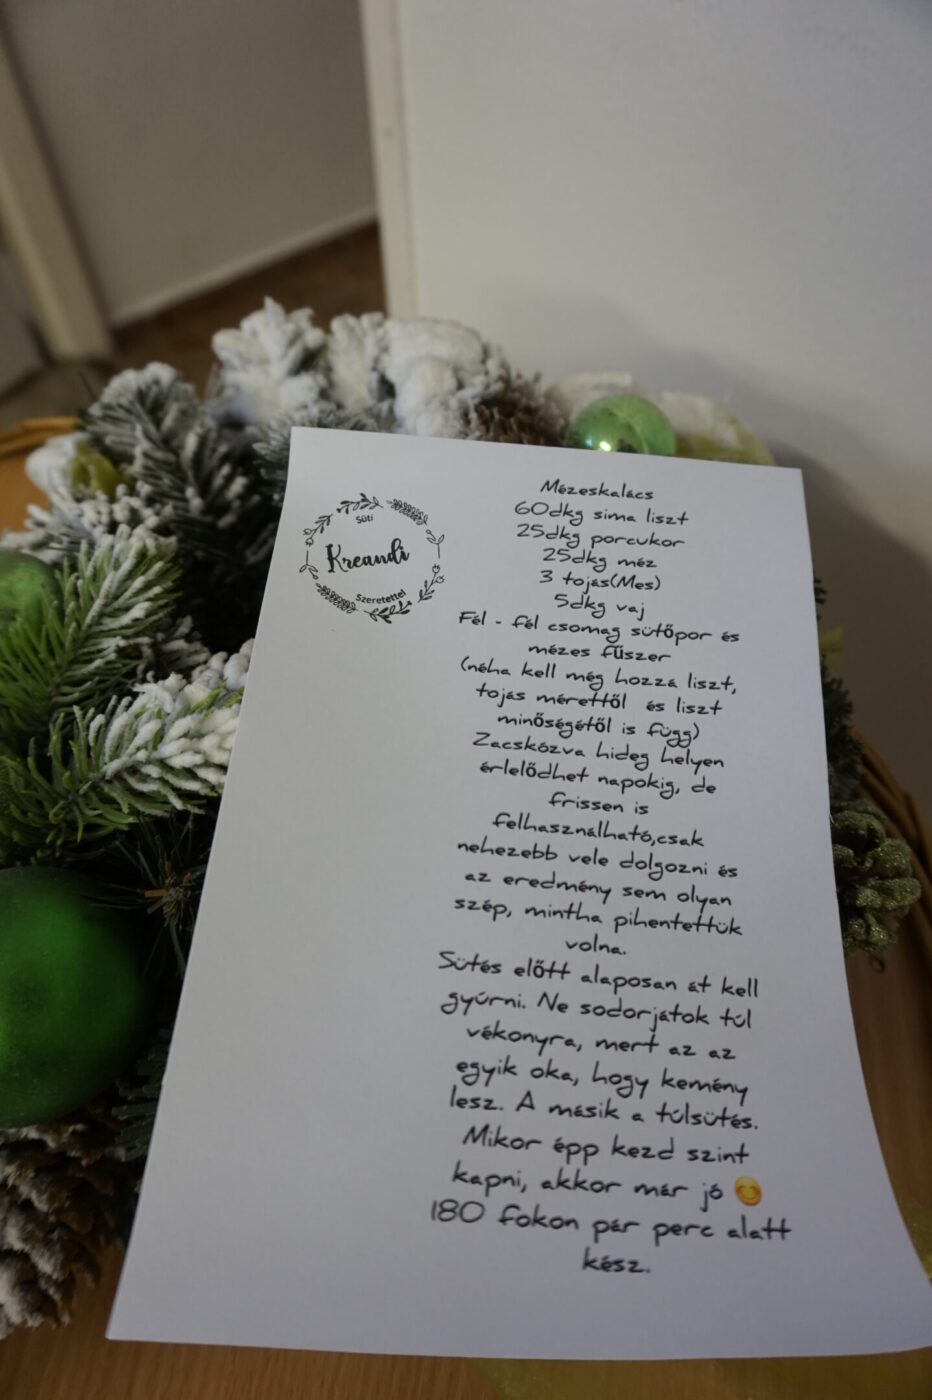 Süti
Kreandi
Szeretettel
Mézeskalács
60dkg sima liszt
25dkg porcukor
25dkg méz
3 tojás(Mes)
5dkg vaj
Fél - fél csomag sütőpor és
mézes fűszer
(néha kell még hozzá liszt,
tojás mérettől és liszt
minőségétől is függ)
Zacskózva hideg helyen
érlelődhet napokig, de
frissen is
felhasználható,csak
nehezebb vele dolgozni és
az eredmény sem olyan
szép, mintha pihentettük
volna.
Sütés előtt alaposan át kell
gyúrni. Ne sodorjátok túl
vékonyra, mert az az
egyik oka, hogy kemény
lesz. A másik a túlsütés.
Mikor épp kezd szint
kapni, akkor már jó 😊
180 fokon pár perc alatt
kész.